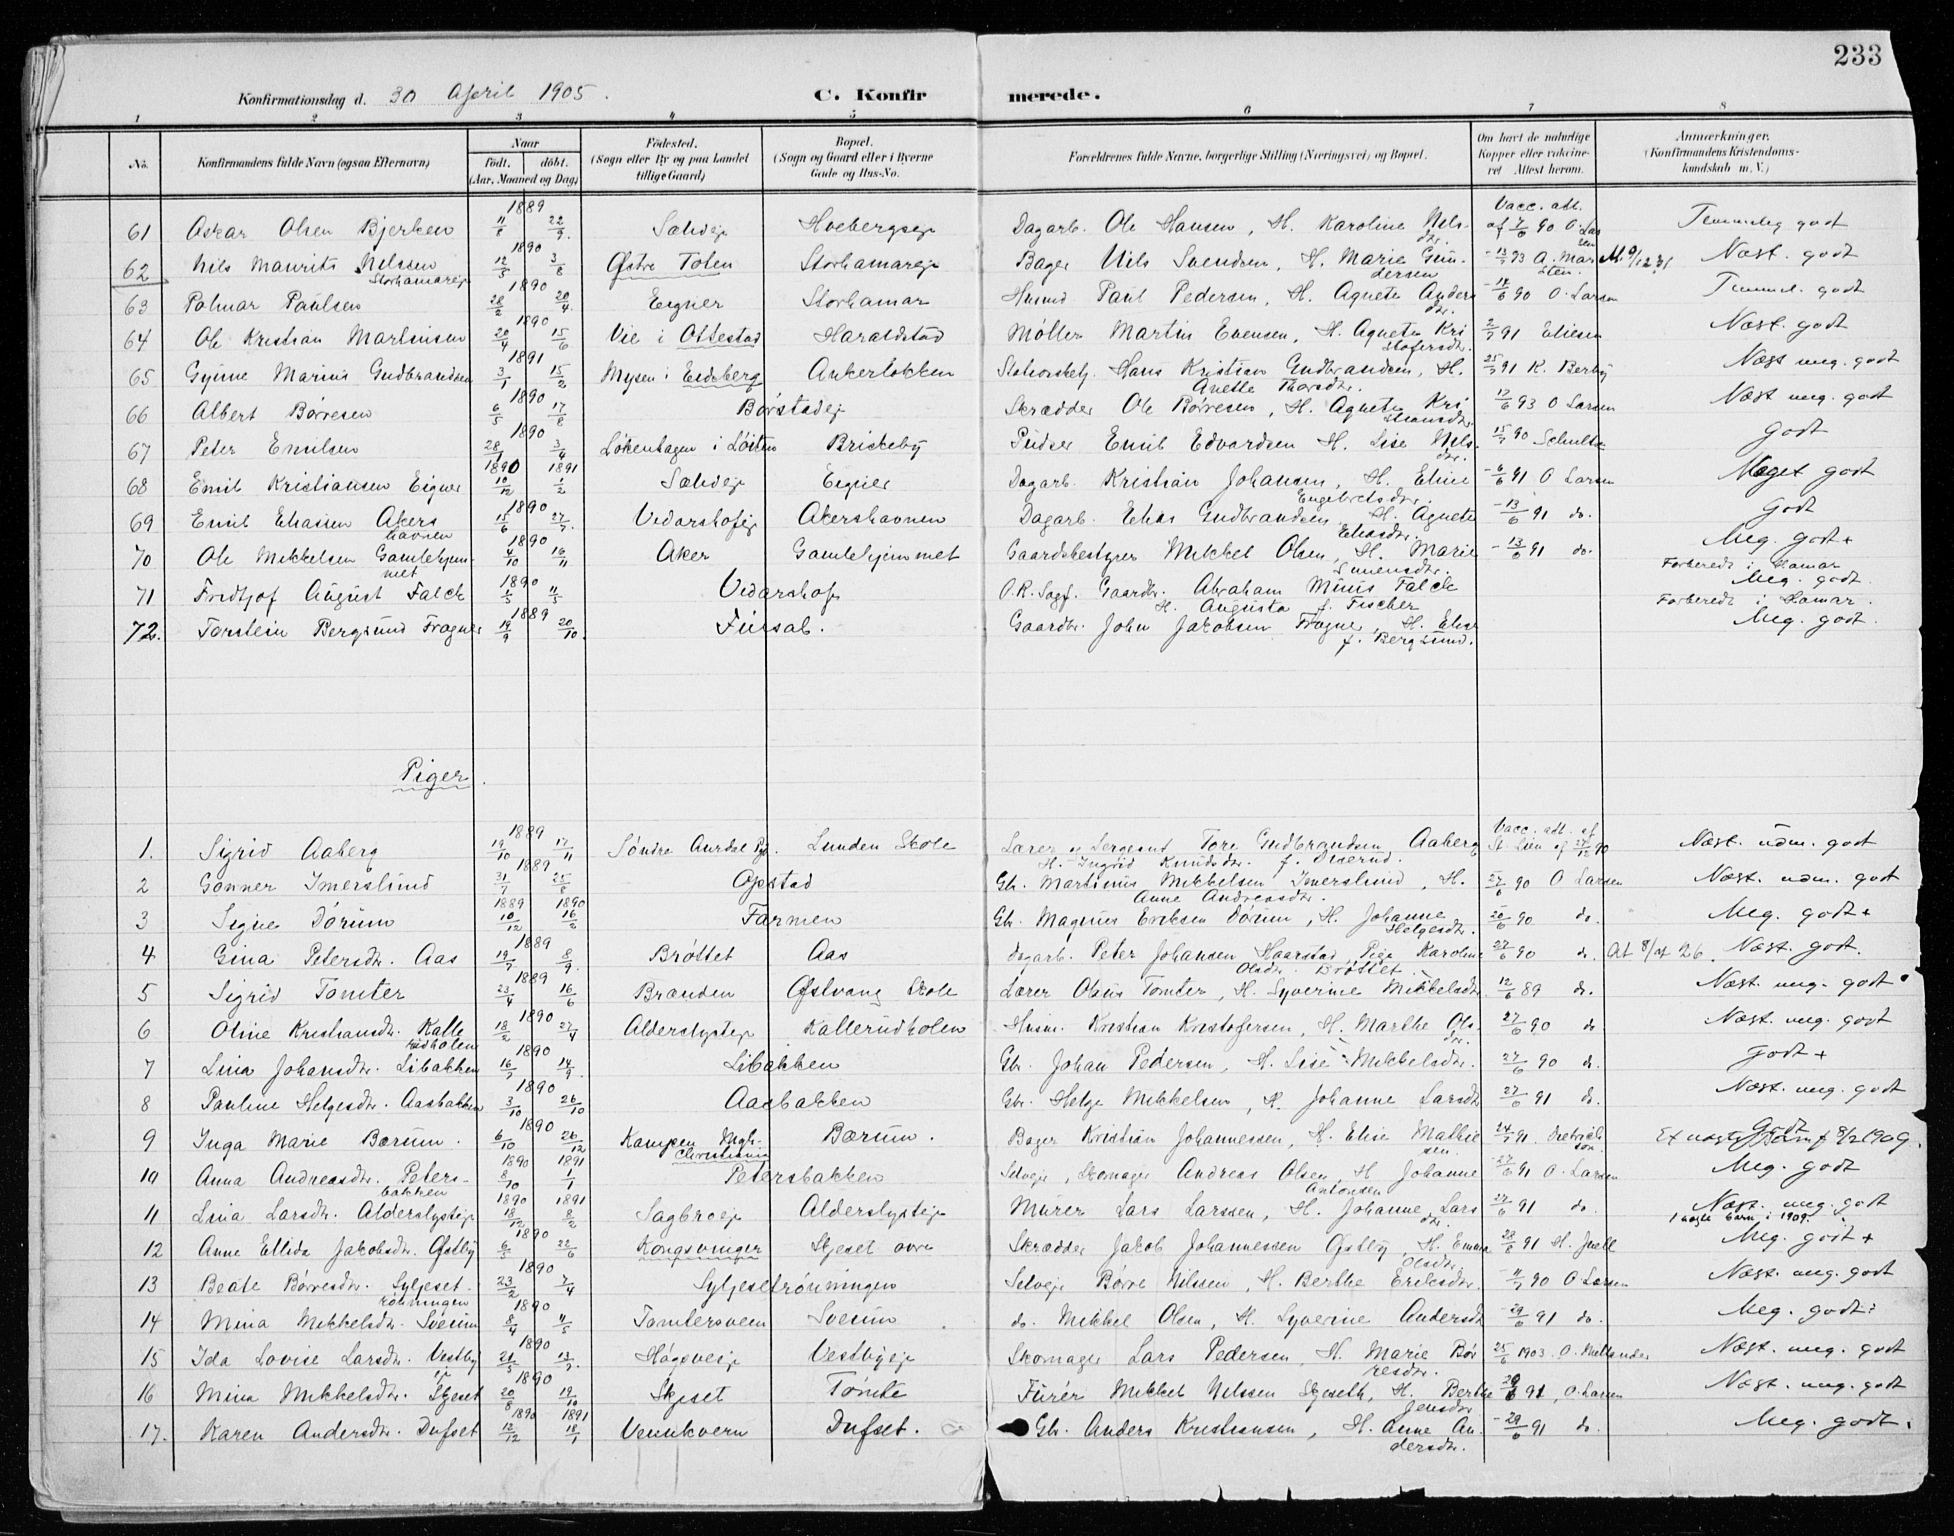 233
Konfirmationsdag d. 30 April 1905. C. Konfir merede.
1 2 3 4 5 6 7 8
No. Konfirmandens fulde Navn (ogsaa Efternavn) Naar født. døbt. (Aar, Maaned og Dag) Fødested. (Sogn eller By og paa Landet tillige Gaard) Bopæl. (Sogn og Gaard eller i Byerne Gade og Hus-No. Forældrenes fulde Navne, borgerlige Stilling (Næringsvei) og Bopæl. Om havt de naturlige Kopper eller vaccineret Attest herom. Anmærkninger. (Konfirmandens Kristendomskundskab m. V.)
61 Oskar Olsen Bjerken 1889 11/8 22/9 Sælidej Hoebergseje Dagarb. Ole Hansen, H. Karoline Nilsdtr. Vacc. att. af 7/6 90 O. Larsen Temmelig godt
62 Nils Maurits Nilssen Storhamareje 1890 12/5 3/8 Østre Toten Storhamareje Bager Nils Svendsen, H. Marie Gundersen 93 A. Marsten Næst. godt
63 Palmar Paulsen 1890 28/2 20/4 Eigner Storhamar Husmd Paul Pedersen, H. Agnete Andersdtr. 90 O. Larsen Temmel. godt
64 Ole Kristian Martinsen 1890 20/4 15/6 Vie i Ottestad Haraldstad Møller Martin Evensen, H. Agnete Kristofersdtr. 91 Eliesen Næst. godt
65 Gynne Marius Gudbrandsen 1891 3/1 15/2 Mysen i Eidsberg Ankerløkken Stationsbetj. Hans Kristian Gudbrandsen, H. Anette Thorsdtr. 25/7 91 K. Berby Næst meg. godt
66 Albert Børresen 1890 6/5 17/8 Børstadeje Skrædder Ole Børresen, H. Agnete Kristiansdtr. 93 O Larsen Næst meg. godt
67 Peter Emilsen 1890 28/1 3/4 Løkenhagen i Løiten Brickeby Pudser Emil Edvardsen H. Lise Nilsdtr. 15/7 90 Schultz Godt
68 Emil Kristiansen Eigner 1890 10/12 1891 1/2 Sælidej Eigner Dagarb. Kristian Johansen, H. Eline Engebretsdtr. 91 O Larsen Meget godt
69 Emil Eliassen Akershavnen 1890 15/6 27/7. Vidarshofeje Akershavnen Dagarb. Elias Gudbrandsen H. Agnete Eliasdtr. 13/6 91 do. Godt
70 Ole Mikkelsen Gamlehjemmet 1890 4/10 16/11 Aker Gamlehjemmet Gaardsbestyrer Mikkel Olsen, H. Marie Simensdtr. 13/6 91 do. Meg. godt+
71 Fridtjof August Falck 1890 11/5 Vidarshof O.R. Sagf. Gaardbr. Abraham Munis Falck H. Augusta f. Fischer Forberedt i Hamar Meg. godt.
72. Torstein Bergsund Frogner 1889 19/9 20/10. Furusat. Gaardbr. John Jakobsen Frogner, H. Elise f. Bergsund. Forberedt i Hamar. Meg. godt.
Piger.
1. Sigrid Aaberg 1889 19/10 17/11 Søndre Aurdal Lunden Skole Lærer og Sergeant Tore Gudbrandsen Aaberg H. Ingrid Knudsdtr. Vacc. att. af 90 Næst. udm. godt
2 Gonner Imerslund 1889 31/7 25/8 Opstad Gb. Martinius Mikkelsen Imerslund, H. Anne Andreasdtr. 27/6 90 O Larsen Næst. udm. godt
3 Signe Dørum 1889 10/12 1890 16/2 Farmen Gb. Magnus Eriksen Dørum, H. Johanne Helgesdtr. 20/6 90 do. Meg. godt+
4 Gina Petersdtr. Aas 1889 19/7 8/9. Brøttet Aas Dagarb. Peter Johansen Haarstad, Pige Karoline Olsdtr. Brøttet 27/6 90 d. At 8/4 26. Næst. godt.
5 Sigrid Tomter 1889 23/4 16/6 Brænden Østvang Skole Lærer Olaus Tomter, H. Syverine Mikkelsdtr. 12/6 89 d. Næst. meg. godt
6 Oline Kristiansdtr. Kallerudholen 1890 18/2 27/4 Alderslysteje Kallerudholen Husm. Kristian Kristofersen, H. Marthe Olsdtr. 27/6 90 do Næst. meg. godt
7 Lina Johansdtr. Libakken 1890 16/7 14/9. Libakken Gbr. Johan Pedersen, H. Lise Mikkelsdtr. 27/6 90 d. Godt+
8 Pauline Helgesdtr. Aasbakken 1890 3/10 26/10 Aasbakken Gbr. Helge Mikkelsen, H. Johanne Larsdtr 27/6 91 d. Næst. meg. godt
9 Inga Marie Bærum. 1890 6/10 26/12 Kampen Mgh. Christiania Bærum. Bager Kristian Johannessen, H. Elise Mathiesen. 91. Dietrichson. Godt Ex uægte Barn f 8/2 1909.
10 Anna Andreasdtr. Petersbakken 1890 8/10 1891 1/1 Petersbakken Selvejer, Skomager Andreas Olsen, H Johanne Antonsen 27/6 91 O. Larsen Meg. godt
11 Lina Larsdtr. Alderslysteje 1890 18/12 1891 8/2 Sagbroeje Alderslysteje Murer Lars Larssen, H. Johanne Larsdtr. 27/6 91 do. Næst. meg. godt 1 uægte barn i 1909.
12 Anne Ellida Jakobsdtr. Østby 1890 6/5 22/6 Kongsvinger Skjeset øvre Skrædder Jakob Johannessen Østby, H. Emma Olsdtr. 28/8 91 H. Juell Meg. godt+
13 Beate Børresdtr. Syljesetrønningen 1890 23/2 7/4 Syljesetrønningen Selvejer Børre Nilssen, H. Berthe Eriksdtr. 90 O Larsen Næst. meg. godt
14 Mina Mikkelsdtr. Sveum 1890 8/4 11/5 Tomtersveen Sveum do. Mikkel Olsen, H. Syverine Andersdtr 29/6 91 do. Meg. godt:
15 Ida Lovise Larsdtr. Vestbyeje 1890 21/5 13/7. Høgsveje Vestbyeje Skomager Lars Pedersen, H. Marie Børresdtr. 25/6 1903. O. Mellander Næst. meg. godt
16 Mina Mikkelsdtr. Skjeset 1890 20/8 19/10 Skjeset Tomte Furér Mikkel Nilssen Skjeseth, H. Berthe Jensdtr 29/6 91, O. Larsen Næst. meg. godt
17. Karen Andersdtr. Dufset 1890 12/12 1891 18/1 Vennkvern Dufset. Gb. Anders Kristiansen, H. Anne Andersdtr. 29/6 91 do. Meg. godt.